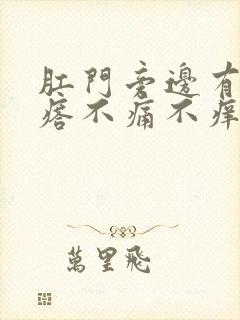 肛門旁邊有
痞不痛不痒
萬里飛